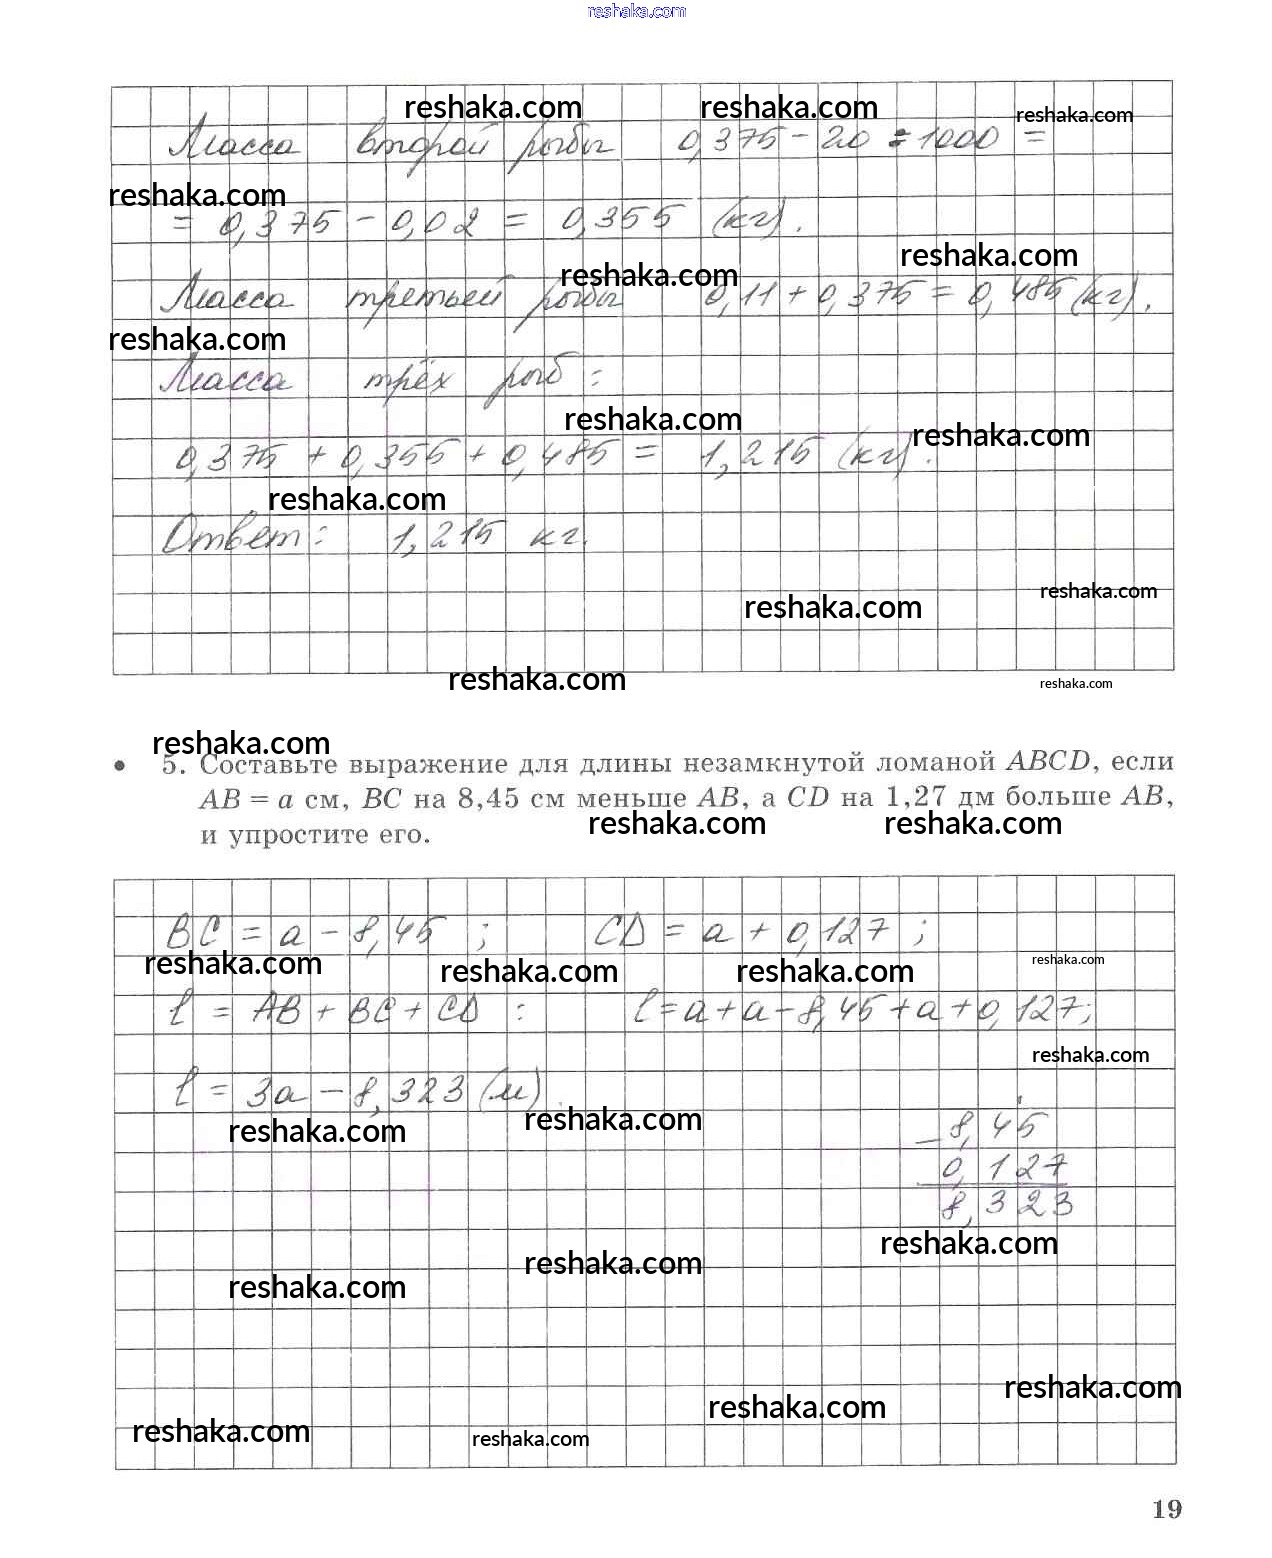 reshaka.com
reshaka.com reshaka.com reshaka.com
Масса второй рыбы 0,375 - 20 : 1000 =
reshaka.com
= 0,375 - 0,02 = 0,355 (кг).
reshaka.com reshaka.com
Масса третьей рыбы 0,11 + 0,375 = 0,485 (кг).
reshaka.com
Масса трёх рыб:
reshaka.com reshaka.com
0,375 + 0,355 + 0,485 = 1,215 (кг).
reshaka.com
Ответ: 1,215 кг.
reshaka.com reshaka.com
reshaka.com reshaka.com
reshaka.com
• 5. Составьте выражение для длины незамкнутой ломаной ABCD, если
AB = a см, BC на 8,45 см меньше AB, а CD на 1,27 дм больше AB,
reshaka.com reshaka.com
и упростите его.
BC = a - 8,45 ; CD = a + 0,127 ;
reshaka.com reshaka.com reshaka.com reshaka.com
l = AB + BC + CD : l = a + a - 8,45 + a + 0,127;
reshaka.com
l = 3a - 8,323 (м).
reshaka.com reshaka.com
- 8,45
0,127
8,323
reshaka.com
reshaka.com reshaka.com
reshaka.com
reshaka.com
reshaka.com reshaka.com
19